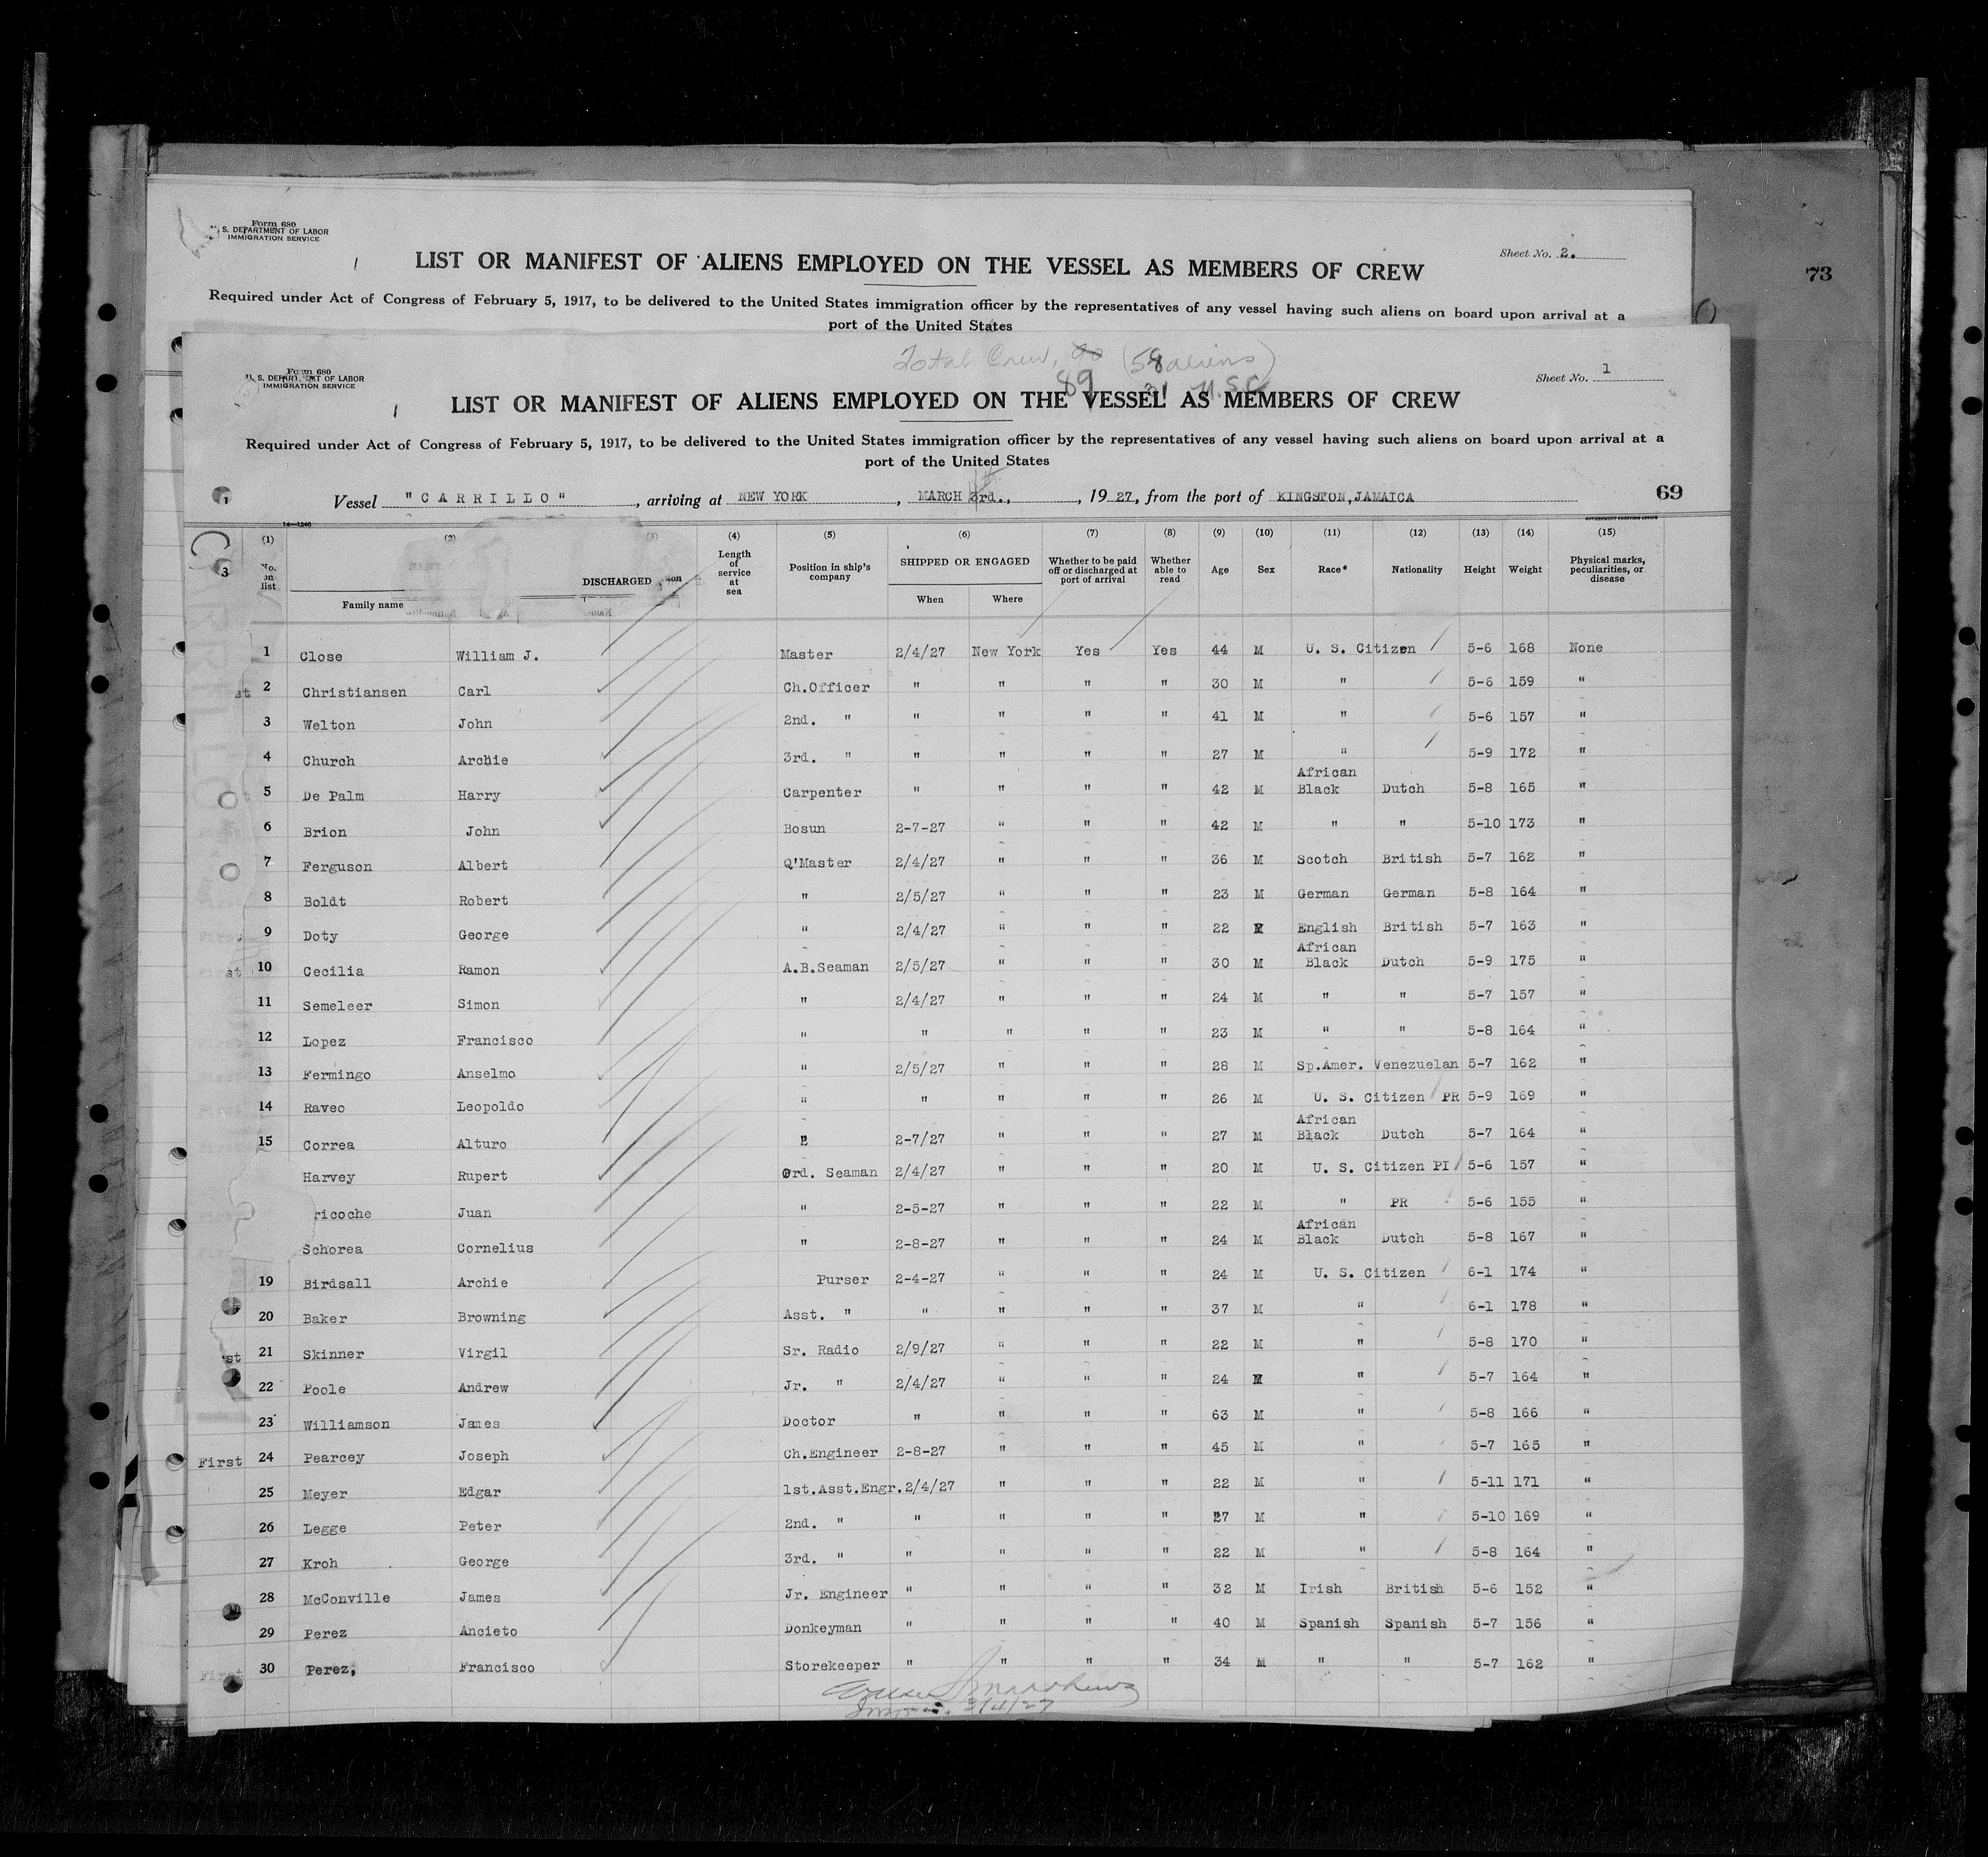 Form 680
S. DEPARTMENT OF LABOR
IMMIGRATION SERVICE
Sheet No. 2.
LIST OR MANIFEST OF ALIENS EMPLOYED ON THE VESSEL AS MEMBERS OF CREW
73
Required under Act of Congress of February 5, 1917, to be delivered to the United States immigration officer by the representatives of any vessel having such aliens on board upon arrival at a
port of the United States
Total Crew, 90 (58 aliens)
89 31 U.S.C
Form 680
U. S. DEPARTMENT OF LABOR
IMMIGRATION SERVICE
Sheet No. 1
LIST OR MANIFEST OF ALIENS EMPLOYED ON THE VESSEL AS MEMBERS OF CREW
Required under Act of Congress of February 5, 1917, to be delivered to the United States immigration officer by the representatives of any vessel having such aliens on board upon arrival at a
port of the United States
Vessel "CARRILLO", arriving at NEW YORK, MARCH 3rd., 1927, from the port of KINGSTON, JAMAICA
69
14-1240
(1) (2) (3) (4) (5) (6) (7) (8) (9) (10) (11) (12) (13) (14) (15)
No. on list Family name DISCHARGED Length of service at sea Position in ship's company SHIPPED OR ENGAGED When Where Whether to be paid off or discharged at port of arrival Whether able to read Age Sex Race* Nationality Height Weight Physical marks, peculiarities, or disease
1 Close William J. Master 2/4/27 New York Yes Yes 44 M U. S. Citizen 5-6 168 None
2 Christiansen Carl Ch.Officer " " " " 30 M " 5-6 159 "
3 Welton John 2nd. " " " " " 41 M " 5-6 157 "
4 Church Archie 3rd. " " " " " 27 M " 5-9 172 "
5 De Palm Harry Carpenter " " " " 42 M African Black Dutch 5-8 165 "
6 Brion John Bosun 2-7-27 " " " 42 M " " 5-10 173 "
7 Ferguson Albert Q'Master 2/4/27 " " " 36 M Scotch British 5-7 162 "
8 Boldt Robert " 2/5/27 " " " 23 M German German 5-8 164 "
9 Doty George " 2/4/27 " " " 22 M English British 5-7 163 "
10 Cecilia Ramon A.B.Seaman 2/5/27 " " " 30 M African Black Dutch 5-9 175 "
11 Semeleer Simon " 2/4/27 " " " 24 M " " 5-7 157 "
12 Lopez Francisco " " " " " 23 M " " 5-8 164 "
13 Fermingo Anselmo " 2/5/27 " " " 28 M Sp.Amer. Venezuelan 5-7 162 "
14 Raveo Leopoldo " " " " " 26 M U. S. Citizen PR 5-9 169 "
15 Correa Alturo " 2-7/27 " " " 27 M African Black Dutch 5-7 164 "
Harvey Rupert Ord. Seaman 2/4/27 " " " 20 M U. S. Citizen PI 5-6 157 "
ricoche Juan " 2-5-27 " " " 22 M " PR 5-6 155 "
Schorea Cornelius " 2-8-27 " " " 24 M African Black Dutch 5-8 167 "
19 Birdsall Archie Purser 2-4-27 " " " 24 M U. S. Citizen 6-1 174 "
20 Baker Browning Asst. " " " " " 37 M " 6-1 178 "
21 Skinner Virgil Sr. Radio 2/9/27 " " " 22 M " 5-8 170 "
22 Poole Andrew Jr. " 2/4/27 " " " 24 M " 5-7 164 "
23 Williamson James Doctor " " " " 63 M " 5-8 166 "
First 24 Pearcey Joseph Ch.Engineer 2-8-27 " " " 45 M " 5-7 165 "
25 Meyer Edgar 1st.Asst.Engr. 2/4/27 " " " 22 M " 5-11 171 "
26 Legge Peter 2nd. " " " " " 27 M " 5-10 169 "
27 Kroh George 3rd. " " " " " 22 M " 5-8 164 "
28 McConville James Jr. Engineer " " " " 32 M Irish British 5-6 152 "
29 Perez Ancieto Donkeyman " " " " 40 M Spanish Spanish 5-7 156 "
30 Perez, Francisco Storekeeper " " " " 34 M " " 5-7 162 "
3/4/27